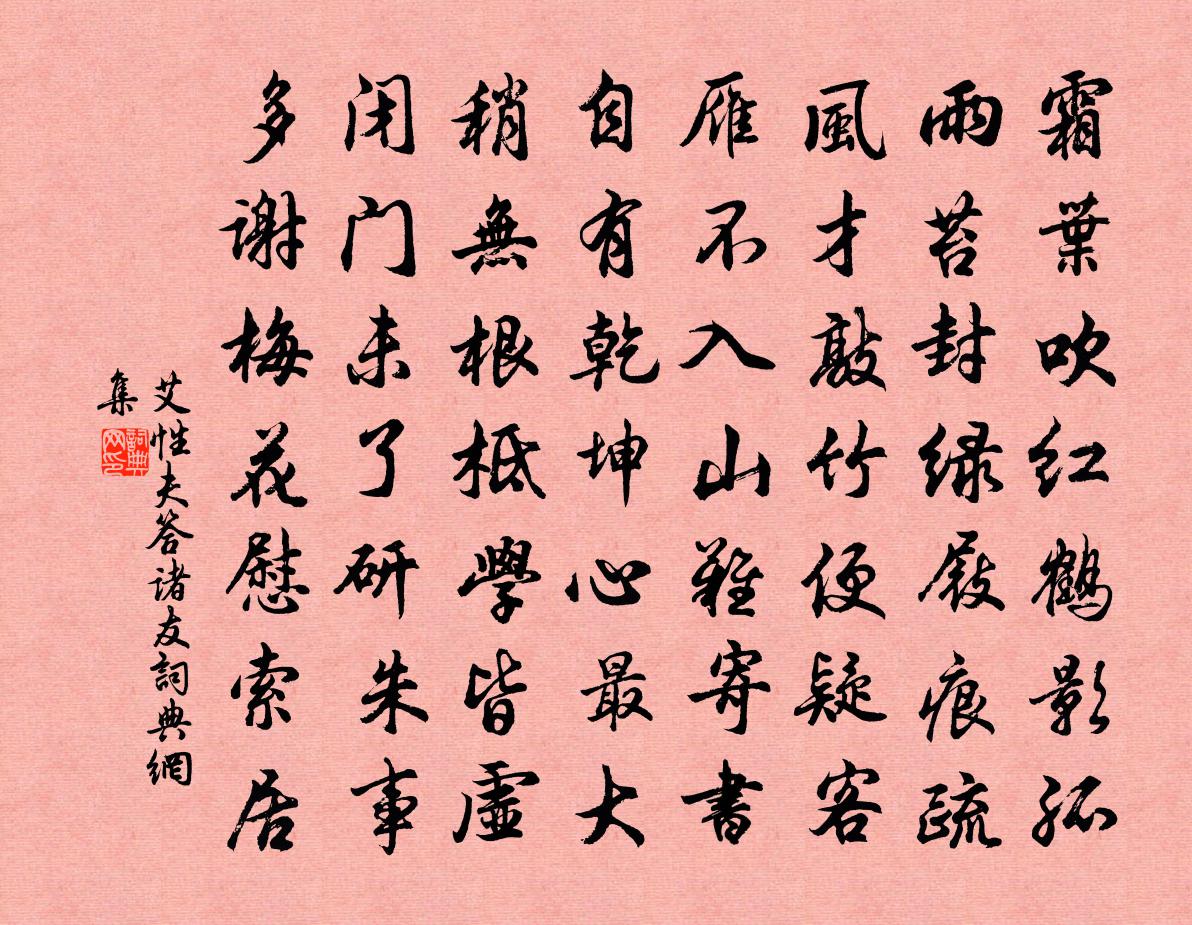 霜葉吹红鶴影孤
雨苔封绿屐痕疏
風才敲竹便疑客
雁不入山難寄書
自有乾坤心最大
稍無根柢學皆虛
闭门未了研朱事
多謝梅花慰索居
艾性夫答诸友詞典網
集
詞典网印